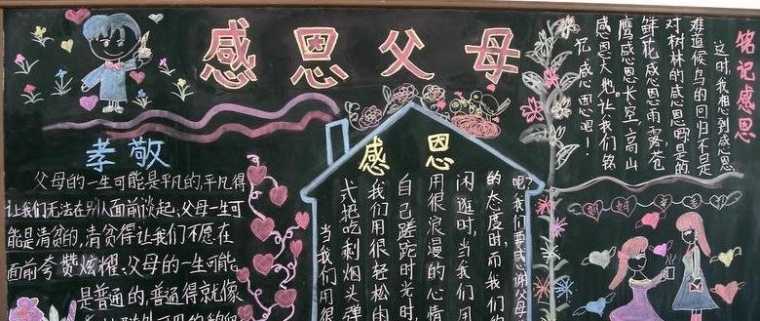 感恩父母
孝敬
父母的一生可能是平凡的，平凡得
让我们无法在别人面前谈起，父母一生可
能是清贫的，清贫得让我们不愿在
面前夸赞炫耀、父母的一生可能
是普通的，普通得就像
感恩
吧？我们要感谢父母
的态度时，而我们的
闲逛时，当我们用
用很浪漫的心情
自己蹉跎时光时，
我们用很轻松的
式把吃剩烟头弹
当我们用很
铭记感恩
这时，我想到感恩
难道候鸟的回归不是
对树林的感恩吗？是的
鲜花感恩雨露，苍
鹰感恩长空，高山
感恩大地。让我们铭
记感恩吧！